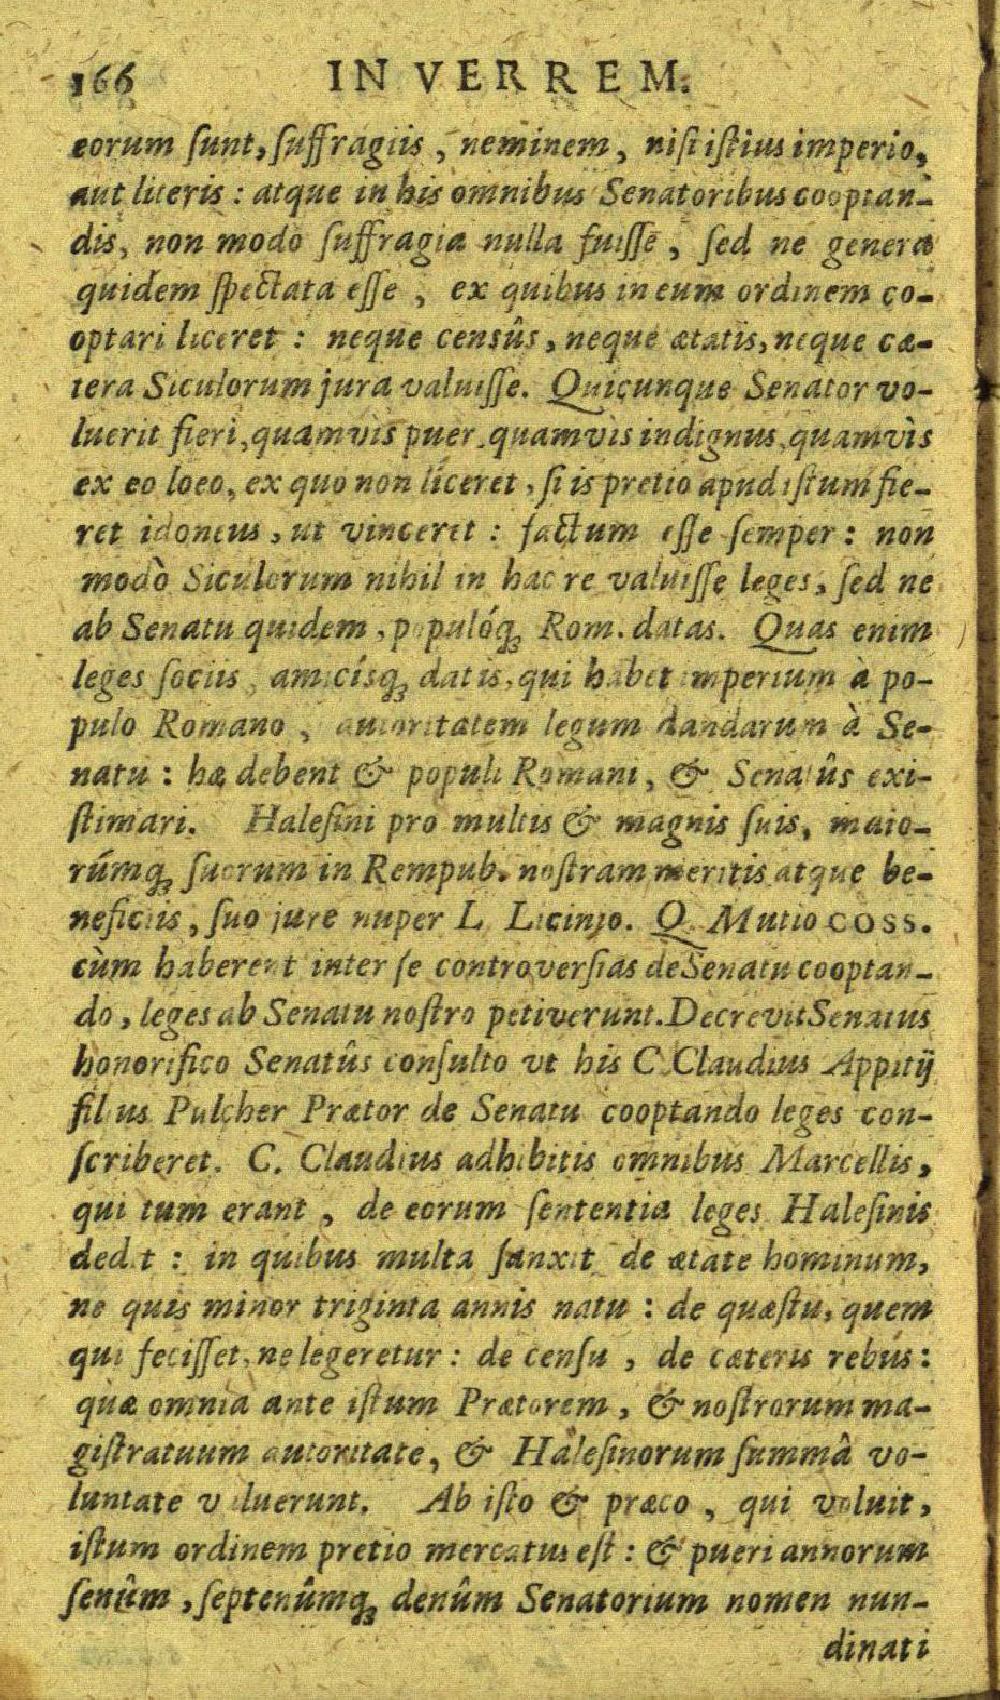 166 IN VERREM.
eorum ſunt, ſuffragiis, neminem, niſi iſtius imperio,
aut literis: atque in his omnibus Senatoribus cooptan-
dis, non modo ſuffragia nulla fuiſſe, ſed ne genera
quidem ſpectata eſſe, ex quibus in eum ordinem co-
optari liceret: neque censûs, neque ætatis, neque cæ-
tera Siculorum jura valuiſſe. Quicunque Senator vo-
luerit fieri, quamvis puer, quamvis indignus, quamvìs
ex eo loeo, ex quo non liceret, ſi is pretio apud iſtum fie-
ret idoneus, ut vinceret: factum eſſe ſemper: non
modò Siculorum nihil in hac re valuiſſe leges, ſed ne
ab Senatu quidem, populóq; Rom. datas. Quas enim
leges ſociis, amicísq; datis, qui habet imperium à po-
pulo Romano, autoritatem legum dandarum à Se-
natu: hæ debent & populi Romani, & Senatûs exi-
ſtimari. Haleſini pro multis & magnis ſuis, maio-
rúmq; ſuorum in Rempub. noſtram meritis atque be-
neficiis, ſuo jure nuper L. Licinio. Q. Mutio COSS.
cùm haberent inter ſe controverſias de Senatu cooptan-
do, leges ab Senatu noſtro petiverunt. Decrevit Senatus
honorifico Senatûs conſulto vt his C. Claudius Appitij
filius Pulcher Prætor de Senatu cooptando leges con-
ſcriberet. C. Claudius adhibitis omnibus Marcellis,
qui tum erant, de eorum ſententia leges Haleſinis
dedit: in quibus multa ſanxit de ætate hominum,
ne quis minor triginta annis natu: de quæſtu, quem
qui feciſſet, ne legeretur: de cenſu, de cæteris rebus:
quæ omnia ante iſtum Prætorem, & noſtrorum ma-
giſtratuum autoritate, & Haleſinorum ſummâ vo-
luntate valuerunt. Ab iſto & præco, qui voluit,
iſtum ordinem pretio mercatus eſt: & pueri annorum
ſenûm, ſeptenûmq; denûm Senatorium nomen nun-
dinati